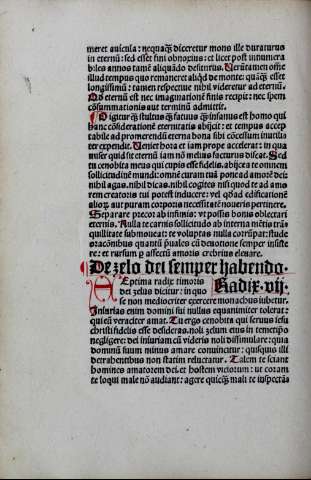 meret avicula: nequaq̃ diceretur mons ille duraturus
in eternũ: sed esset fini obnoxius: et licet post innumera
biles annos tamẽ aliquãdo desitur⁹. Verũtamen om̃e
illud tempus quo remaneret aliqd de monte: quãq̃ esset
longissimũ: tamen respective nihil videretur ad eternũ.
Qd eternũ est nec imaginationẽ finis recipit: nec spem
cõsummationis aut terminũ admittit.
Digitur q̃ stultus q̃ fatuus q̃ insanus est homo qui
hanc cõsiderationẽ eternitatis abijcit: et tempus accep
tabile ad promerendũ eterna bona sibi cõcessum inutili
ter expendit. Veniet hora et iam prope accelerat: in qua
miser quid sit eternũ iam nõ melius facturus discet. Sed
tu cenobita meus qui cupis esse fidelis. abijce a te omnem
sollicitudinẽ mundi: omnẽ curam tuã pone ad amorẽ dei:
nihil agas. nihil dicas. nihil cogites nisi quod te ad amo
rem creatoris tui potest inducere: vel qd ad edificationẽ
alioꝝ. aut puram corporis necessitatẽ noueris pertinere.
Separare precor ab infimis: vt possis bonis oblectari
eternis. Nulla te carnis sollicitudo ab interna mẽtis trã
quillitate submoueat: te voluptas nulla corrumpat: stude
oracõnibus quantũ p̃uales cũ deuotione semper insiste
re: et rursum p affectũ amoris crebrius eleuare.
De zelo dei semper habendo.
Radix .vij.
Septima radix timoris
dei zelus dicitur: in quo
se non mediocriter exercere monachus iubetur.
Iniurias enim domini sui nullus equanimiter tolerat:
qui eũ veraciter amat. Tu ergo cenobita qui seruus iesu
christi fidelis esse desideras. noli zelum eius in temetip̃o
negligere: dei iniuriam cũ videris noli dissimulare: quia
dominũ suum minus amare conuincitur: quisquis illi
detrahentibus non statim reluctatur. Talem te sciant
homines amatorem dei. et hostem viciorum: vt coram
te loqui male nõ audiant: agere quicq̃ mali te inspectãte